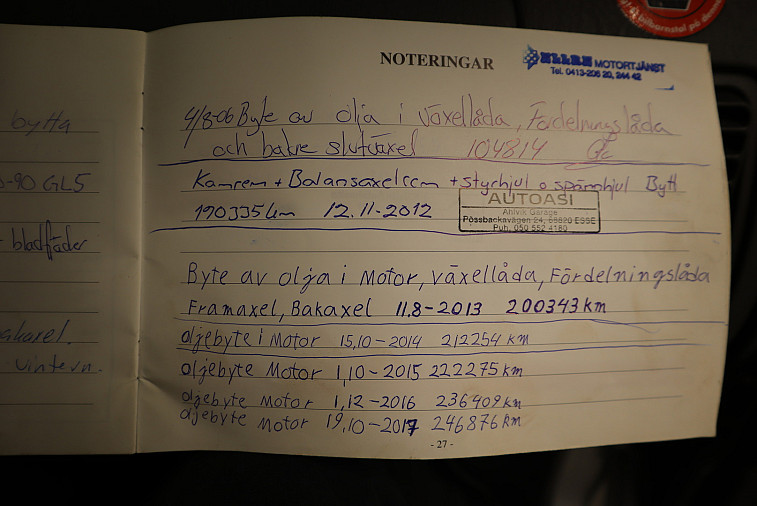 bytta
-90 GL5
bladfjäder
vintern.
NOTERINGAR
MOTORTJÄNST
Tel. 0413-206 20, 244 42
4/8-06 Byte av olja i växellåda, Fördelningslåda
och bakre slutväxel 104814
Kamrem + Balansaxelrem + styrhjul o spännhjul Bytt
190335km 12.11-2012
AUTOASI
Ahlvik Garage
Pössbackavägen 24, 68820 ESSE
Puh. 050 552 4180
Byte av olja i Motor, växellåda, Fördelningslåda
Framaxel, Bakaxel 11.8-2013 200343 km
oljebyte i Motor 15,10-2014 212254 km
oljebyte Motor 1,10-2015 222275 km
oljebyte Motor 1,12-2016 236409 km
oljebyte Motor 19,10-2017 246876 km
-27-